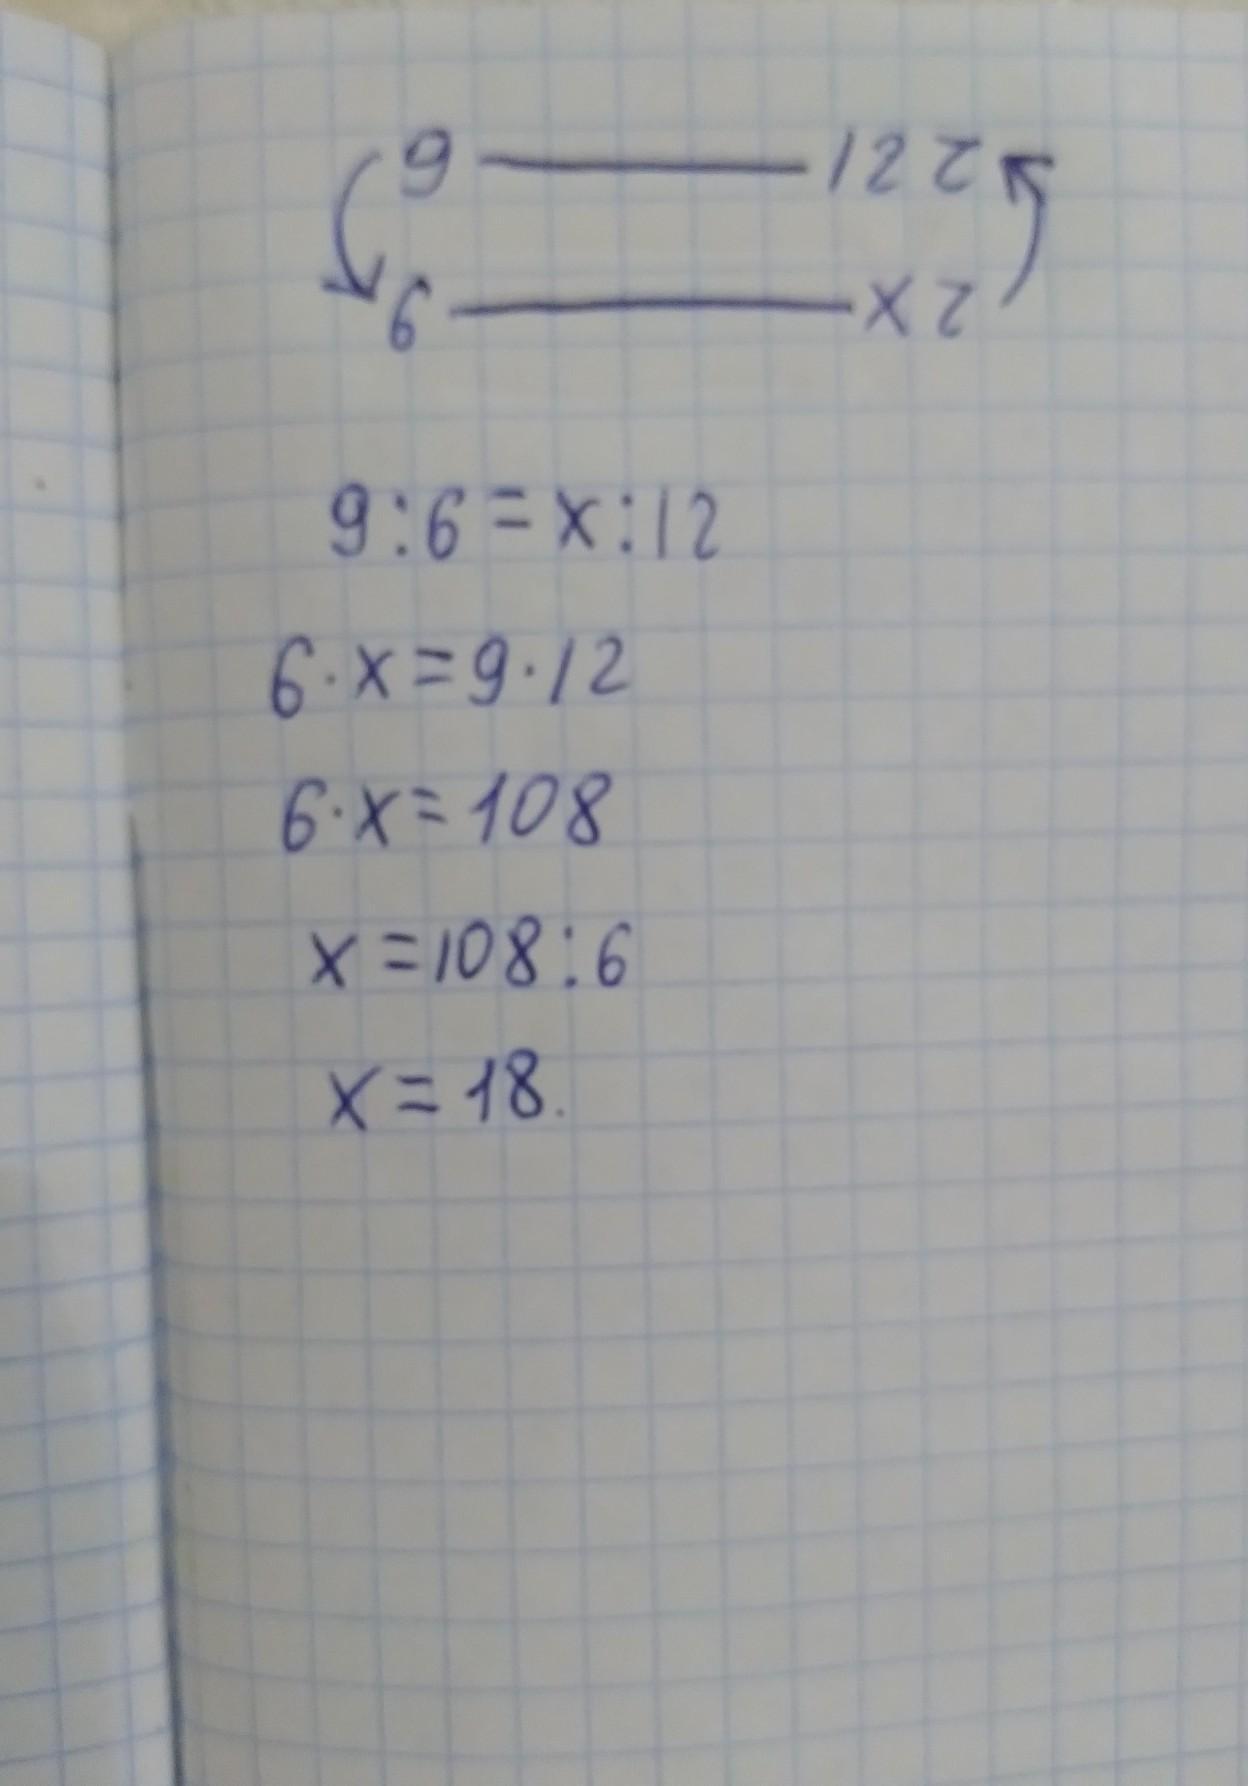 9 — 12 г
6 — x г
9:6=x:12
6·x=9·12
6·x=108
x=108:6
x=18.